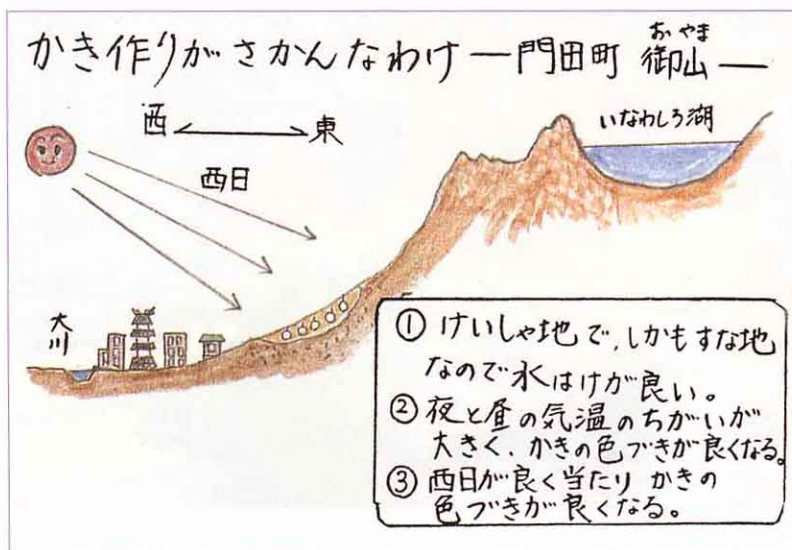 かき作りがさかんなわけ ― 門田町 御山 ―
おやま
西 ⟷ 東
いなわしろ湖
西日
大川
① けいしゃ地で、しかもすな地
なので水はけが良い。
② 夜と昼の気温のちがいが
大きく、かきの色づきが良くなる。
③ 西日が良く当たり かきの
色づきが良くなる。